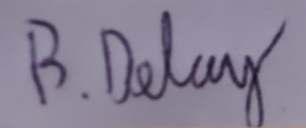 B. Delay